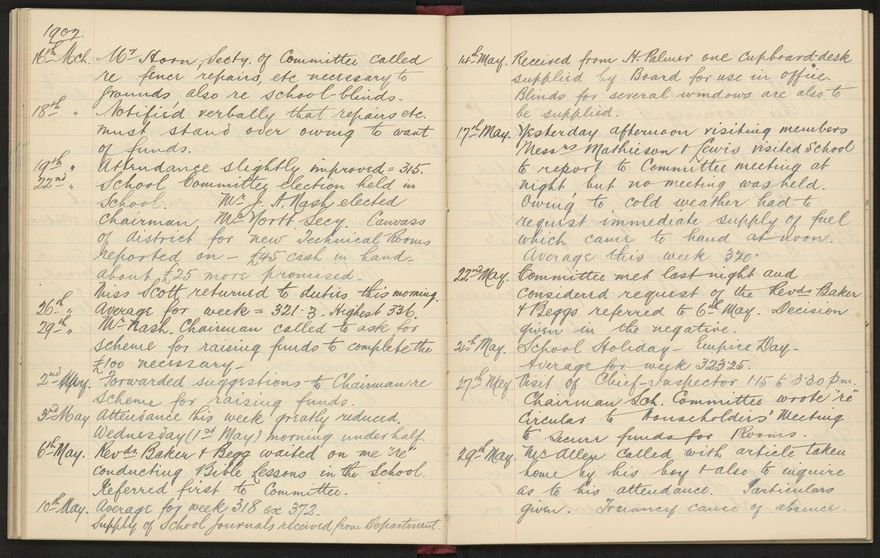 1907.
16th Mch. Mr Hoon, Secty. of Committee called
re fence repairs, etc necessary to
grounds also re school-blinds.
18th " Notified verbally that repairs etc.
must stand over owing to want
of funds.
19th " Attendance slightly improved = 315.
22nd " School Committee election held in
School. Mr J. A. Nash elected
Chairman, Mr Secy. Canvass
of district for new Technical Rooms
reported on - £45 cash in hand.
about £25 more promised.
Miss Scott returned to duties this morning.
26th " Average for week = 321.3. Highest 336.
29th " Mr Nash. Chairman called to ask for
scheme for raising funds to complete the
£100 necessary -
2nd May. Forwarded suggestions to Chairman re
scheme for raising funds.
3rd May Attendance this week greatly reduced,
Wednesday (1st May) morning under half.
6th May. Revds Baker & Begg waited on me "re"
conducting Bible Lessons in the School.
Referred first to Committee.
10th May. Average for week 318 ex 372.
Supply of School Journals received from Department.
14th May. Received from H. Palmer one cupboard-desk
supplied by Board for use in office.
Blinds for several windows are also to
be supplied.
17th May. Yesterday afternoon visiting members
Messrs Mathieson & Lewis visited School
to report to Committee meeting at
night but no meeting was held.
Owing to cold weather had to
request immediate supply of fuel
which came to hand at noon.
Average this week 320.
22nd May. Committee met last night and
considered request of the Revds Baker
& Beggs referred to 6th May. Decision
given in the negative.
24th May. School Holiday - Empire Day -
Average for week 323.25.
27th May Visit of Chief-Inspector 1.15 to 3.30 p.m.
Chairman Sch. Committee wrote "re"
Circular to Householders' Meeting
to secure funds for Rooms.
29th May. Mr Allen called with article taken
home by his boy & also to enquire
as to his attendance. Particulars
given. Truancy cause of absence.